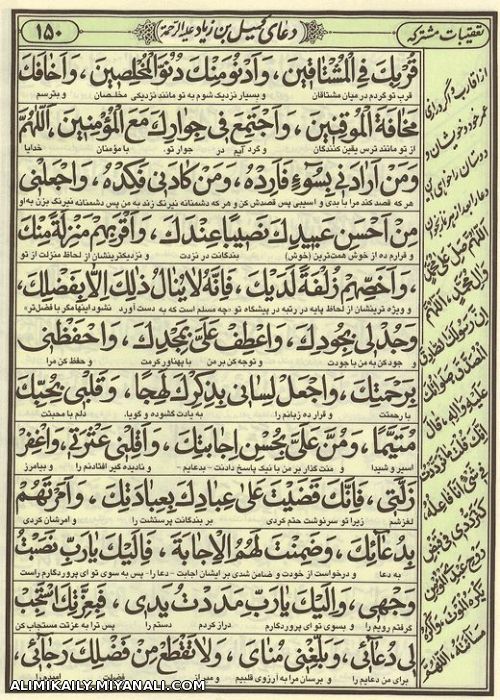 تعقیبات مشترکه
دعای کمیل بن زیاد علیه الرحمة
۱۵۰
قُرْبِكَ فِي الْمُشْتاقينَ، وَاَدْنُوَ مِنْكَ دُنُوَّ الْمُخْلِصينَ، وَاَخافَكَ
قرب تو گردم در میان مشتاقان و بسیار نزدیک شوم به تو مانند نزدیکی مخلصان و بترسم
مَخافَةَ الْمُوقِنينَ، وَاَجْتَمِعَ في جِوارِكَ مَعَ الْمُؤْمِنينَ، اَللّهُمَّ
از تو مانند ترس یقین کنندگان و گرد آیم در جوار تو با مؤمنان خدایا
وَمَنْ اَرادَني بِسُوءٍ فَاَرِدْهُ، وَمَنْ كادَني فَكِدْهُ، وَاجْعَلْني
هر که قصد کند مرا با بدی و آسیبی پس قصدش کن و هر که دشمنانه نیرنگ زند به من پس دشمنانه نیرنگ بزن به او
مِنْ اَحْسَنِ عَبيدِكَ نَصيبًا عِنْدَكَ، وَاَقْرَبِهِمْ مَنْزِلَةً مِنْكَ
و قرارم ده از خوش همت‌ترین (خوش) بندگانت در نزدت و نزدیکترینشان از لحاظ منزلت از تو
، وَاَخَصِّهِمْ زُلْفَةً لَدَيْكَ، فَاِنَّهُ لايُنالُ ذلِكَ اِلاّ بِفَضْلِكَ،
و ویژه ترینشان از لحاظ پایه در رتبه در پیشگاه تو «چه مسلم است که به دست آورد نشود اینهامگر با فضل‌تر»
وَجُدْلي بِجُودِكَ، وَاعْطِفْ عَلَيَّ بِمَجْدِكَ، وَاحْفَظْني
و جود کن به من با جودت و توجه کن بر من با پهناور کرمت و حفظ کن مرا
بِرَحْمَتِكَ، وَاجْعَلْ لِساني بِذِكْرِكَ لَهِجًا، وَقَلْبي بِحُبِّكَ
با رحمتت و قرار ده زبانم را به یادت گشوده و گویا. دلم با محبتت
مُتَيَّمًا، وَمُنَّ عَلَيَّ بِحُسْنِ اِجابَتِكَ، وَاَقِلْني عَثْرَتي، وَاغْفِرْ
اسیر و شیدا و منت گذار بر من با نیک پاسخ دادنت - بدعایم - و نادیده گیر افتادنم را و بیامرز
زَلَّتي، فَاِنَّكَ قَضَيْتَ عَلى عِبادِكَ بِعِبادَتِكَ، وَاَمَرْتَهُمْ
لغزشم زیرا تو سرنوشت حتم کردی بر بندگانت پرستشت را و امرشان کردی
بِدُعائِكَ، وَضَمِنْتَ لَهُمُ الْاِجابَةَ، فَاِلَيْكَ يارَبِّ نَصَبْتُ
به دعا و درخواست از خودت و ضامن شدی بر ایشان اجابت - دعا را - پس به سوی تو ای پروردگارم راست
وَجْهي، وَاِلَيْكَ يارَبِّ مَدَدْتُ يَدي، فَبِعِزَّتِكَ اسْتَجِبْ
گرفتم رویم را و بسوی تو ای پروردگارم دراز کردم دستم را پس ترا به عزتت مستجاب کن
لي دُعائي، وَبَلِّغْني مُنايَ، وَلاتَقْطَعْ مِنْ فَضْلِكَ رَجائي،
برای من دعایم را و برسان مرا به آرزوی قلبیم و مبر از فضلت امیدم را
از اقارب و اگر درازی
عمر خود و خویشان و
دوستان را خواهی این
دعا را بعد از هر نماز بخوان
اَللّهُمَّ صَلِّ عَلى مُحَمَّدٍ
وَآلِ مُحَمَّدٍ، اَللّهُمَّ
اِنَّ رَسُولَكَ الصّادِقَ
الْمُصَدَّقَ صَلَواتُكَ
عَلَيْهِ وَآلِهِ قالَ
اِنَّكَ قُلْتَ ماتَرَدَّدْتُ
في شَيْءٍ اَنَا فاعِلُهُ
كَتَرَدُّدي في قَبْضِ
رُوحِ عَبْدِيَ الْمُؤْمِنِ
يَكْرَهُ الْمَوْتَ وَاَكْرَهُ
مَسائَتَهُ، اَللّهُمَّ
ALIMIKAILY.MIYANALI.COM